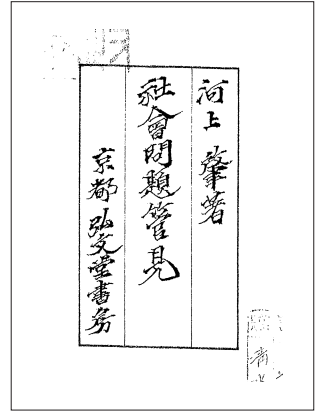 河上肇著
社會問題管見
京都弘文堂書房